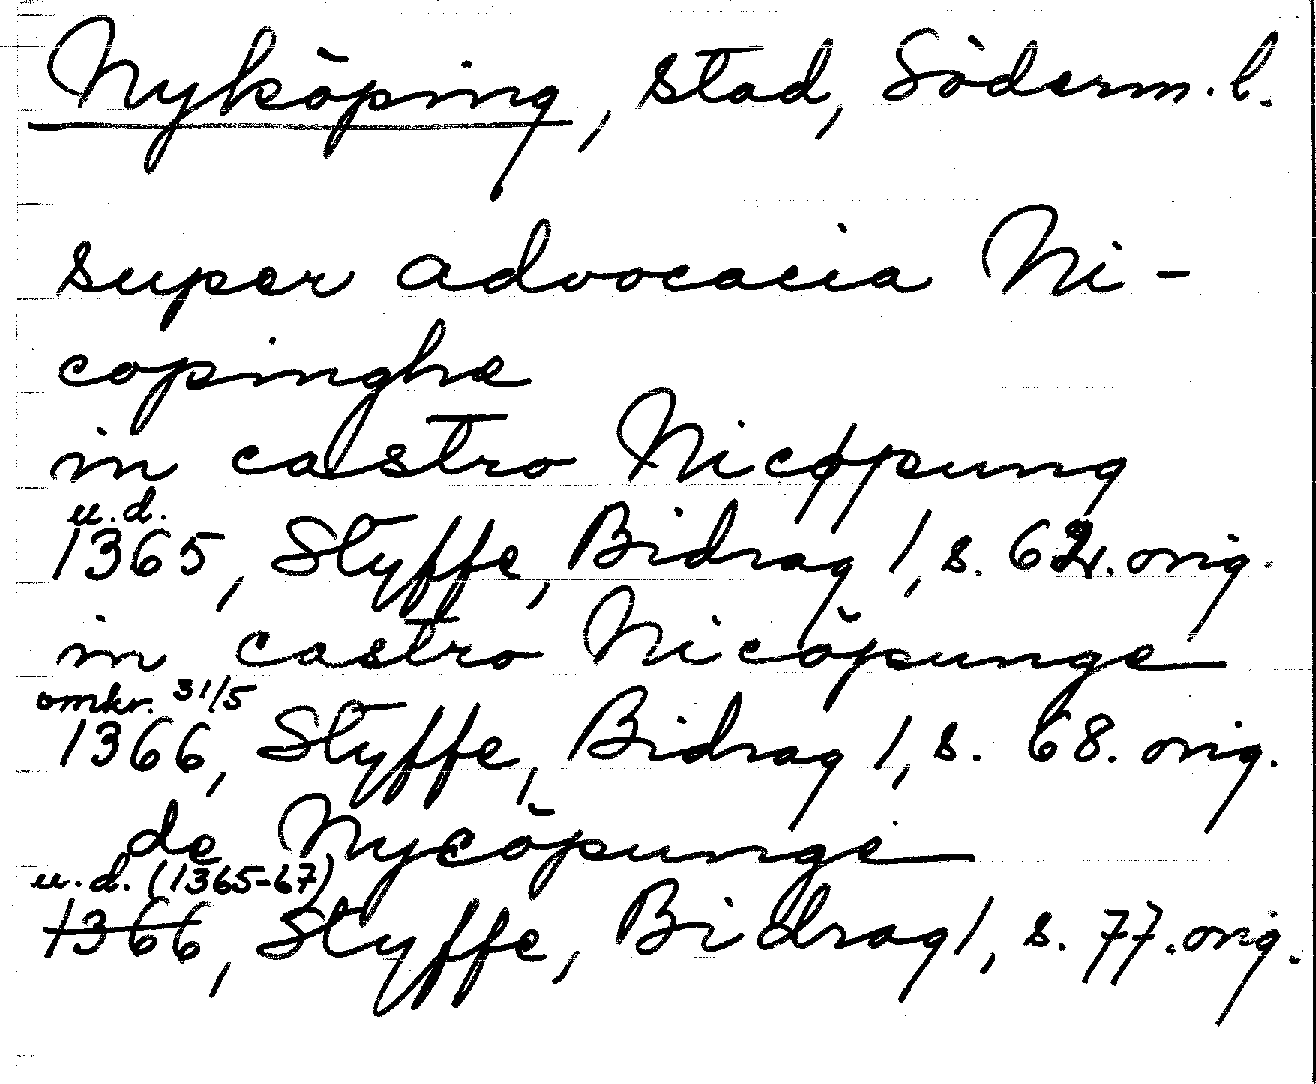 Nyköping, stad, Söderm. l.
super advocacia Ni-
copinghe
in castro Nicøpung
u.d.
1365, Styffe, Bidrag 1, s. 62. orig.
in castro Nicöpunge
omkr. 31/5
1366, Styffe, Bidrag 1, s. 68. orig.
de Nycöpunge
u.d. (1365-67)
1366, Styffe, Bidrag 1, s. 77. orig.